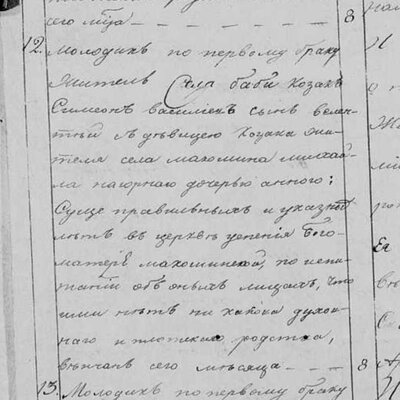 сего мца - - - - - - 8
12. Молодикъ по первому браку
житель Села бабы Козакъ
Симеонъ василіевъ сынъ
Ѣ дѣвицею Козака жи-
теля села махошина михай-
ла нагорнаго дочерью анною;
Суще правильныхъ и указныхъ
лѣтъ въ церквѣ успенія Бго-
матерѣ махошинской, по испи-
таніи объ оныхъ лицахъ, что
ими нѣтъ ни какова духов-
наго и плотскаго родства,
вѣнчанъ сего мѣсяца - - - 8
13. Молодикъ по первому браку